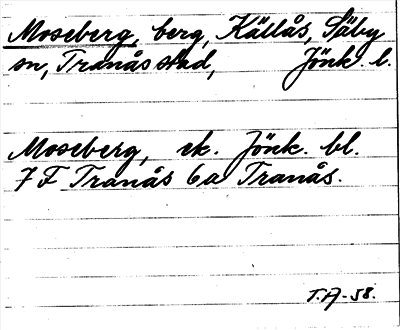 Moseberg, berg, Källås, Säby
sn, Tranås stad, Jönk. l.
Moseberg, ek. Jönk. bl.
7 F Tranås 6a Tranås.
T.A-58.